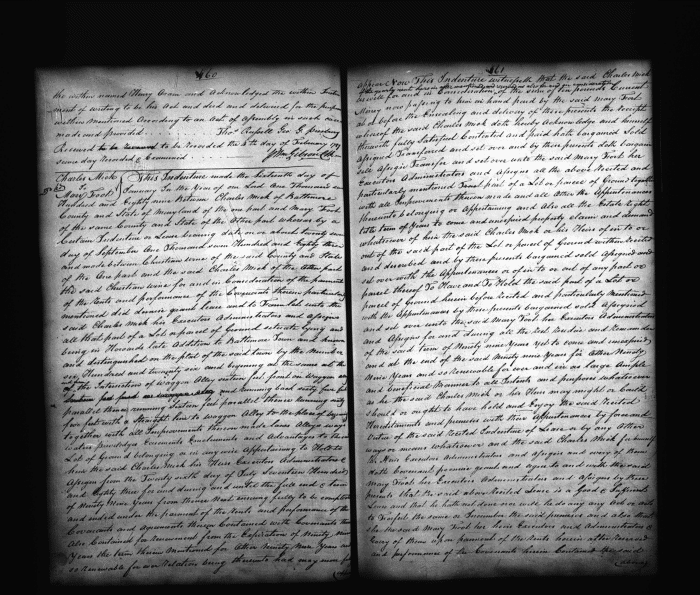 460
the within named Henry Cram and Acknowledged the within Instru
ment of writing to be his Act and deed and delivered for the purposes
within Mentioned According to an Act of Assembly in such case
made and provided
Thos Russell Geo G. Presbury
Received to be Recorded the 6th day of February 1789
same day Recorded & Examined
Charles Mick
To
Mary Foot
This Indenture made the sixteenth day of
January In the Year of our Lord One Thousand seven
Hundred and Eighty nine Between Charles Mick of Baltimore
County and State of Maryland of the one part and Mary Foot
of the same County and State of the Other part whereas by a
Certain Indenture or Lease bearing date on or about twenty
day of September One Thousand seven Hundred and Eighty three
and made between Christian of the said County and State
of the One part and the said Charles Mick of the Other part
the said Christian for and in Consideration of the payment
of the Rents and performance of the Covenants therein particularly
mentioned did demise grant lease and to Farm let unto the
said Charles Mick his Executors Administrators and Assigns
all that part of a Lot or parcel of Ground situate lying and
being in Howards late Addition to Baltimore Town and known
and distinguished on the plat of the said town by the Number
Six Hundred and twenty six and begining at the same at the
of the Intersection of Waggon Alley
and Running back sixty five feet
parallel thence running Sixteen feet parallel thence running
feet with a straight line to Waggon Alley to the place of begining
together with all Improvements thereon made lanes Alleys ways
waters priviledges Easements Emoluments and Advantages to the
Lot of Ground belonging or in any wise Appertaining To Hold to
him the said Charles Mick his Heirs Executors Administrators
Assigns from the Twenty sixth day of July Seventeen Hundred
and Eighty three for and during and until the full end & term
of Ninety Nine Years from thence Next ensuing fully to be compleat
and ended under the payment of the Rents and performance of the
Covenants and agreements therein Contained with Covenants
Also Contained for Renewment from the Expiration of Ninety Nine
Years the term therein Mentioned for Other Ninety Nine Years and
so Renewable for ever Relation being thereunto had may more
461
appear Now This Indenture witnesseth that the said Charles Mick
for and in Consideration of the sum of five pounds Current
Money now passing to him in hand paid by the said Mary Foot
at or before the Ensealing and delivery of these presents the receipt
whereof the said Charles Mick doth hereby Acknowledge and himself
therewith fully Satisfied Contented and paid hath bargained Sold
Assigned Transferred and set over and by these presents doth bargain
sell Assign Transfer and set over unto the said Mary Foot her
Executors Administrators and Assigns all the above Recited and
particularly mentioned part of a Lot or parcel of Ground together
with all Improvements thereon made and all other the Appurtenances
thereunto belonging or Appertaining and Also all the Estate Right
title term of Years to come and unexpired property claim and demand
whatsoever of him the said Charles Mick or his Heirs of in to or
out of the said part of the Lot or parcel of Ground within recited
and described and by these presents bargained sold Assigned and
set over with the Appurtenances or of in to or out of any part or
parcel thereof To Have and To Hold the said part of a Lot or
parcel of Ground herein before Recited and particularly Mentioned
with the Appurtenances by these presents bargained sold Assigned
and set over unto the said Mary Foot her Executors Administrators
and Assigns for and during all the Rest Residue and Remainder
of the said term of Ninety nine Years yet to come and unexpired
and at the end of the said Ninety nine Years for Other Ninety
Nine Years and so Renewable for ever and in as large Ample
and beneficial Manner to all Intents and purposes whatsoever
as he the said Charles Mick or his Heirs may might or Could
should or ought to have held and Enjoy the said Recited
Hereditaments and premises with their Appurtenances by force and
Virtue of the said Recited Indenture of Lease or by any other
ways or means whatsoever and the said Charles Mick for himself
his Heirs Executors Administrators and Assigns and every of them
doth Covenant promise grant and agree to and with the said
Mary Foot her Executors Administrators and Assigns by these
presents that the said above Recited Lease is a Good & Sufficient
Lease and that he hath not done nor will he do any Act or Acts
to Forfeit the same or Incumber the said premises and also that
she the said Mary Foot her Heirs Executors and Administrators &
Every of them upon payment of the Rents herein after Reserved
and performance of the Covenants herein Contained the said